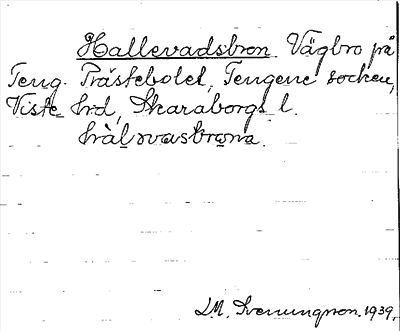 Hallevadsbron Vägbro på
Teng. Prästebolet, Tengene socken,
Viste hrd, Skaraborgs l.
hàlsvasbrona.
D.M. Svenungson. 1939.